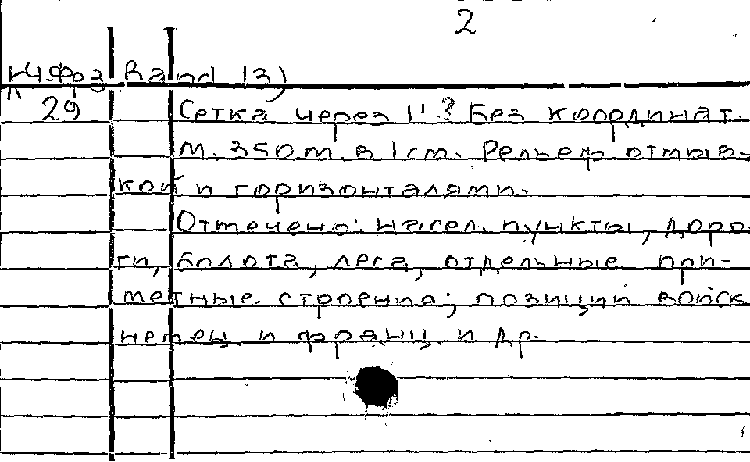 2
К Чфрз Band 13)
29 Сетка через 1'? Без координат.
М. 350 м. в 1 см. Рельеф отмыв-
кой и горизонталями.
Отмечено: насел. пункты, доро-
ги, болота, леса, отдельные при-
метные строения; позиции войск
немец. и франц. и др.